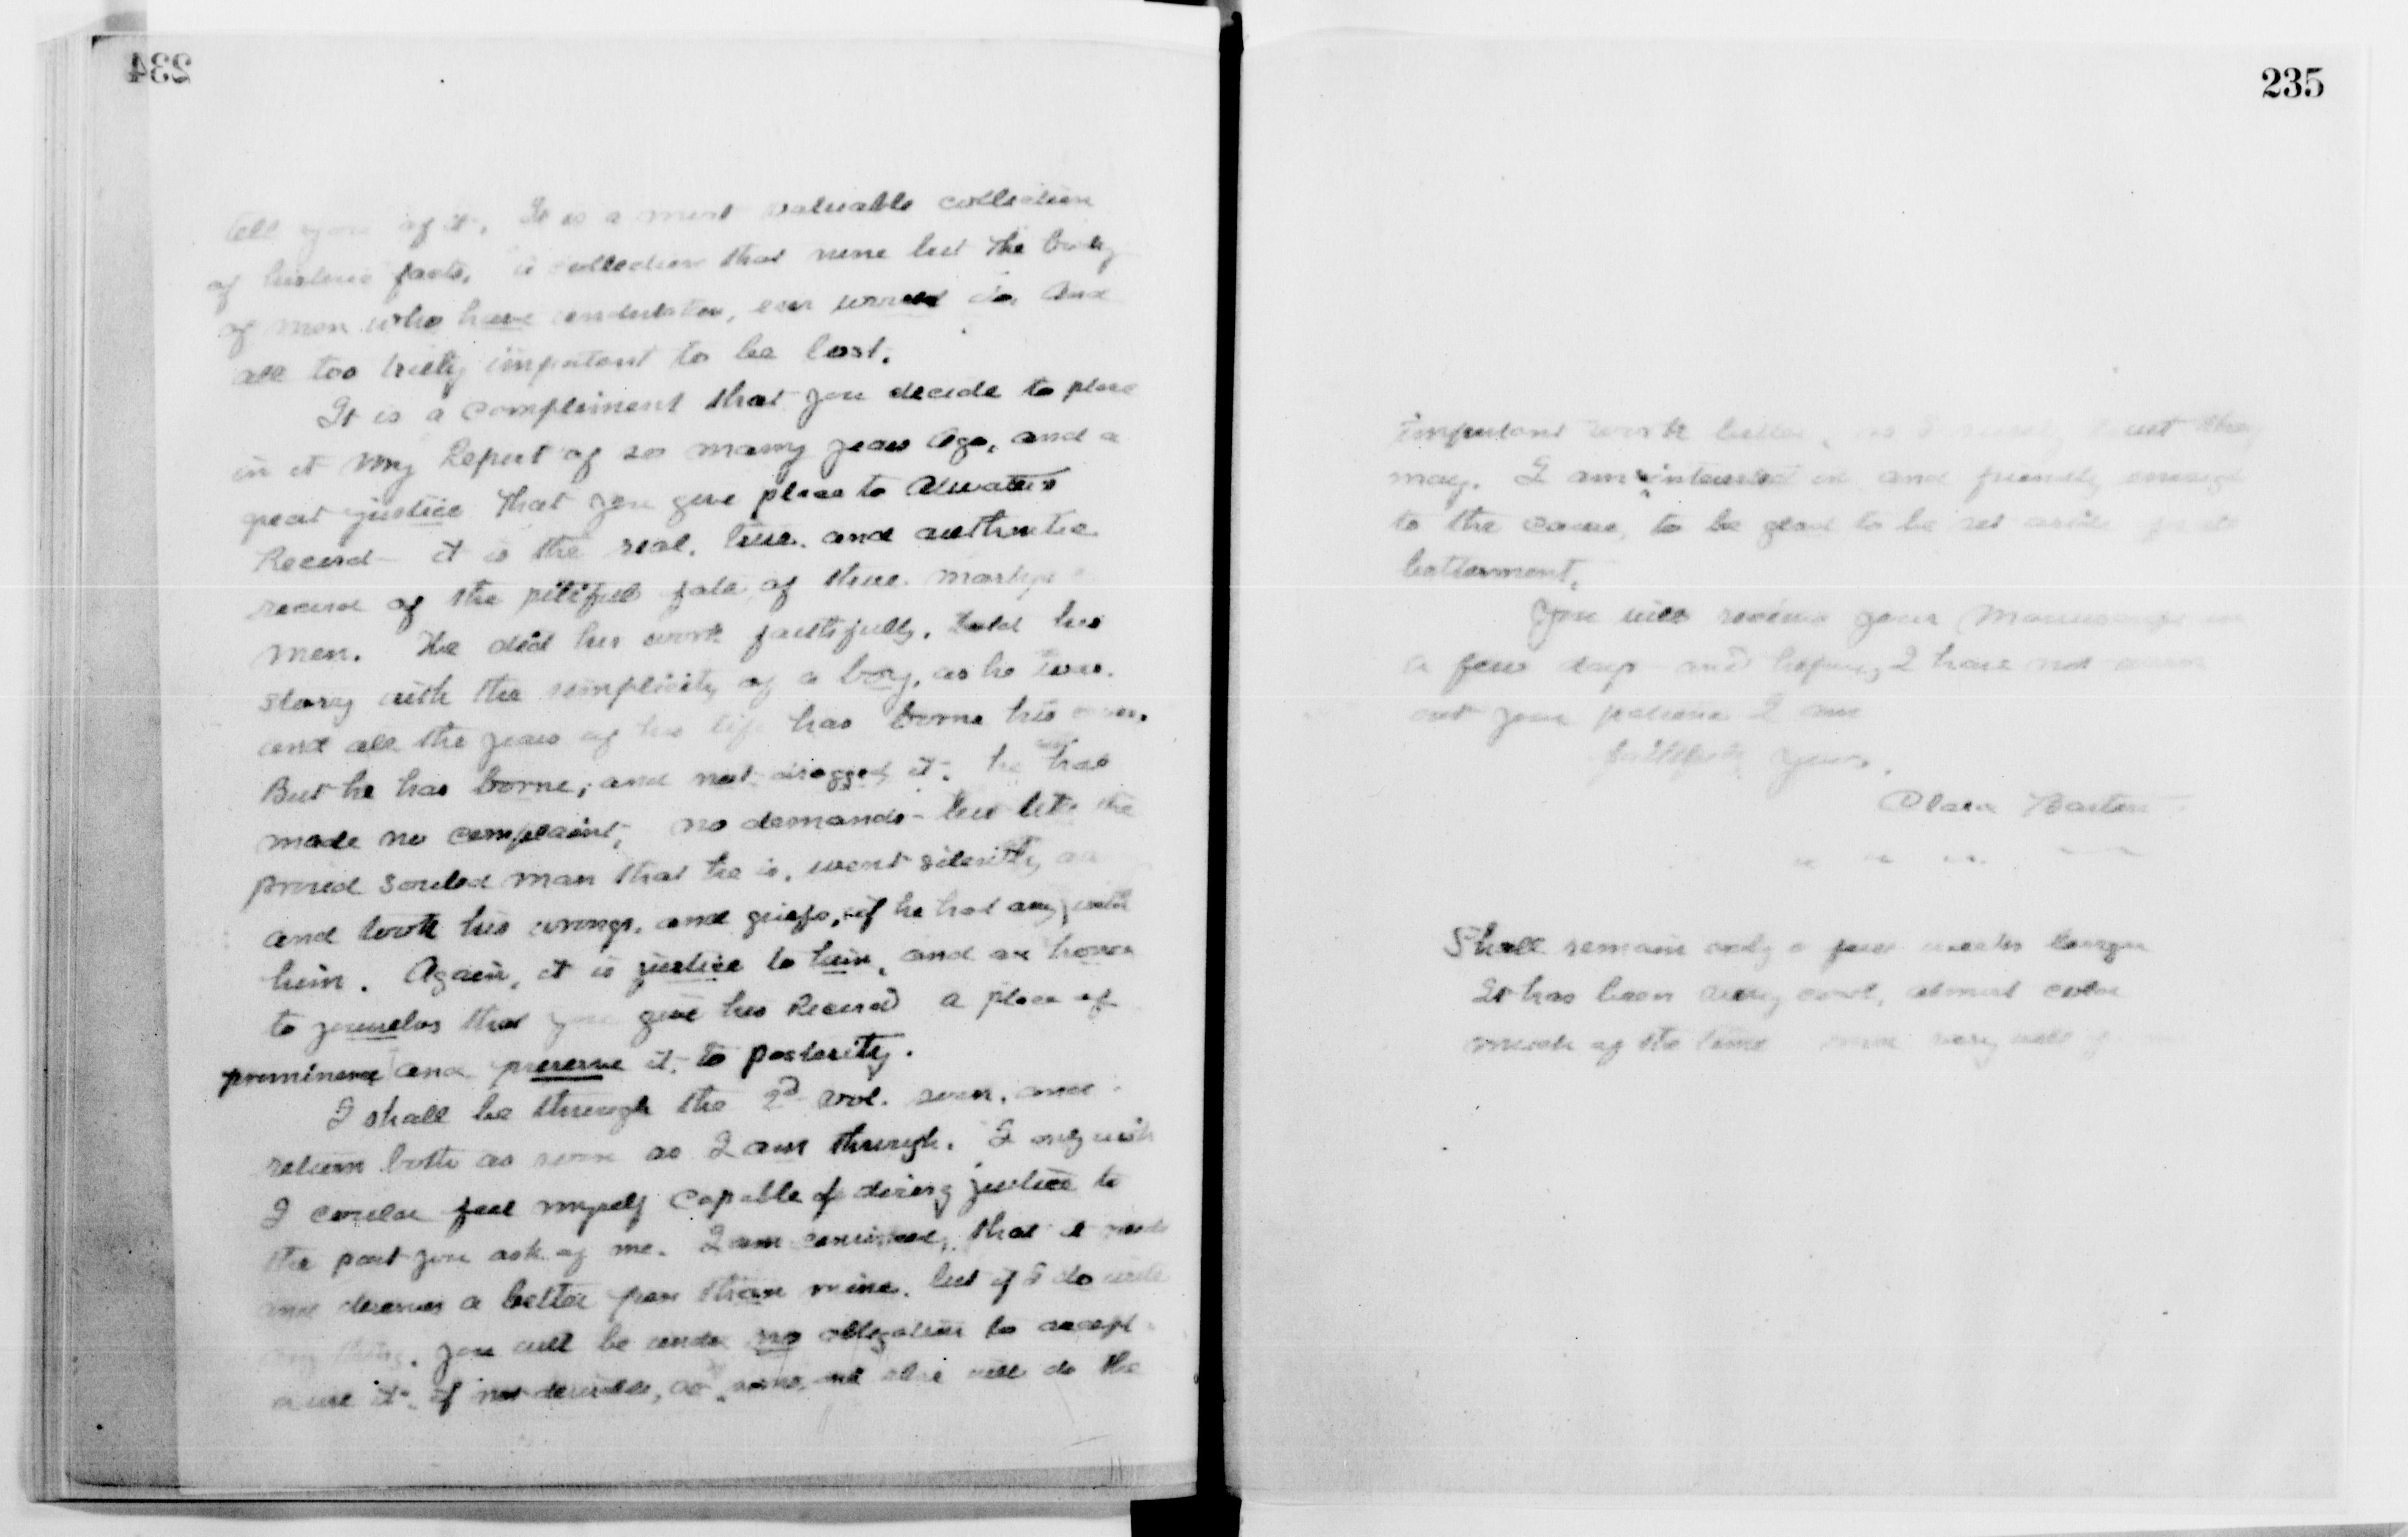 234
tell you of it. It is a most valuable collection
of historic facts, a collection that none but the body
of men who have undertaken, ever would do, and
all too truly important to be lost.
It is a compliment that you decide to place
in it my Report of so many years ago, and a
great justice that you give place to Atwater's
Record - it is the real, true, and authentic
record of the pitiful fate of those martyr
men. He did his work faithfully, told his
story with the simplicity of a boy, as he was.
and all the years of his life has borne his
But he has borne, and not dragged it. he has
made no complaint, no demands - but like the
proud souled man that he is, went silently on
and took his wrongs, and griefs, if he had any, with
him. Again, it is justice to him, and an honor
to yourselves that you give his Record a place of
prominence and preserve it, to posterity.
I shall be through the 2d vol. soon, and
return both as soon as I am through. I only wish
I could feel myself capable of doing justice to
the part you ask of me. I am convinced, that it needs
and deserves a better pen than mine, but if I do write
any thing, you will be under no obligation to accept
or use it, if not desirable, as some one else will do the
235
important work better, as I surely trust they
may. I am interested in and friendly enough
to the cause, to be glad to be set aside for its
betterment.
You will receive your Manuscript in
a few days and hoping I have not worn
out your patience I am
faithfully yours,
Clara Barton
Shall remain only a few weeks longer
It has been very cool, almost cold
much of the time very well